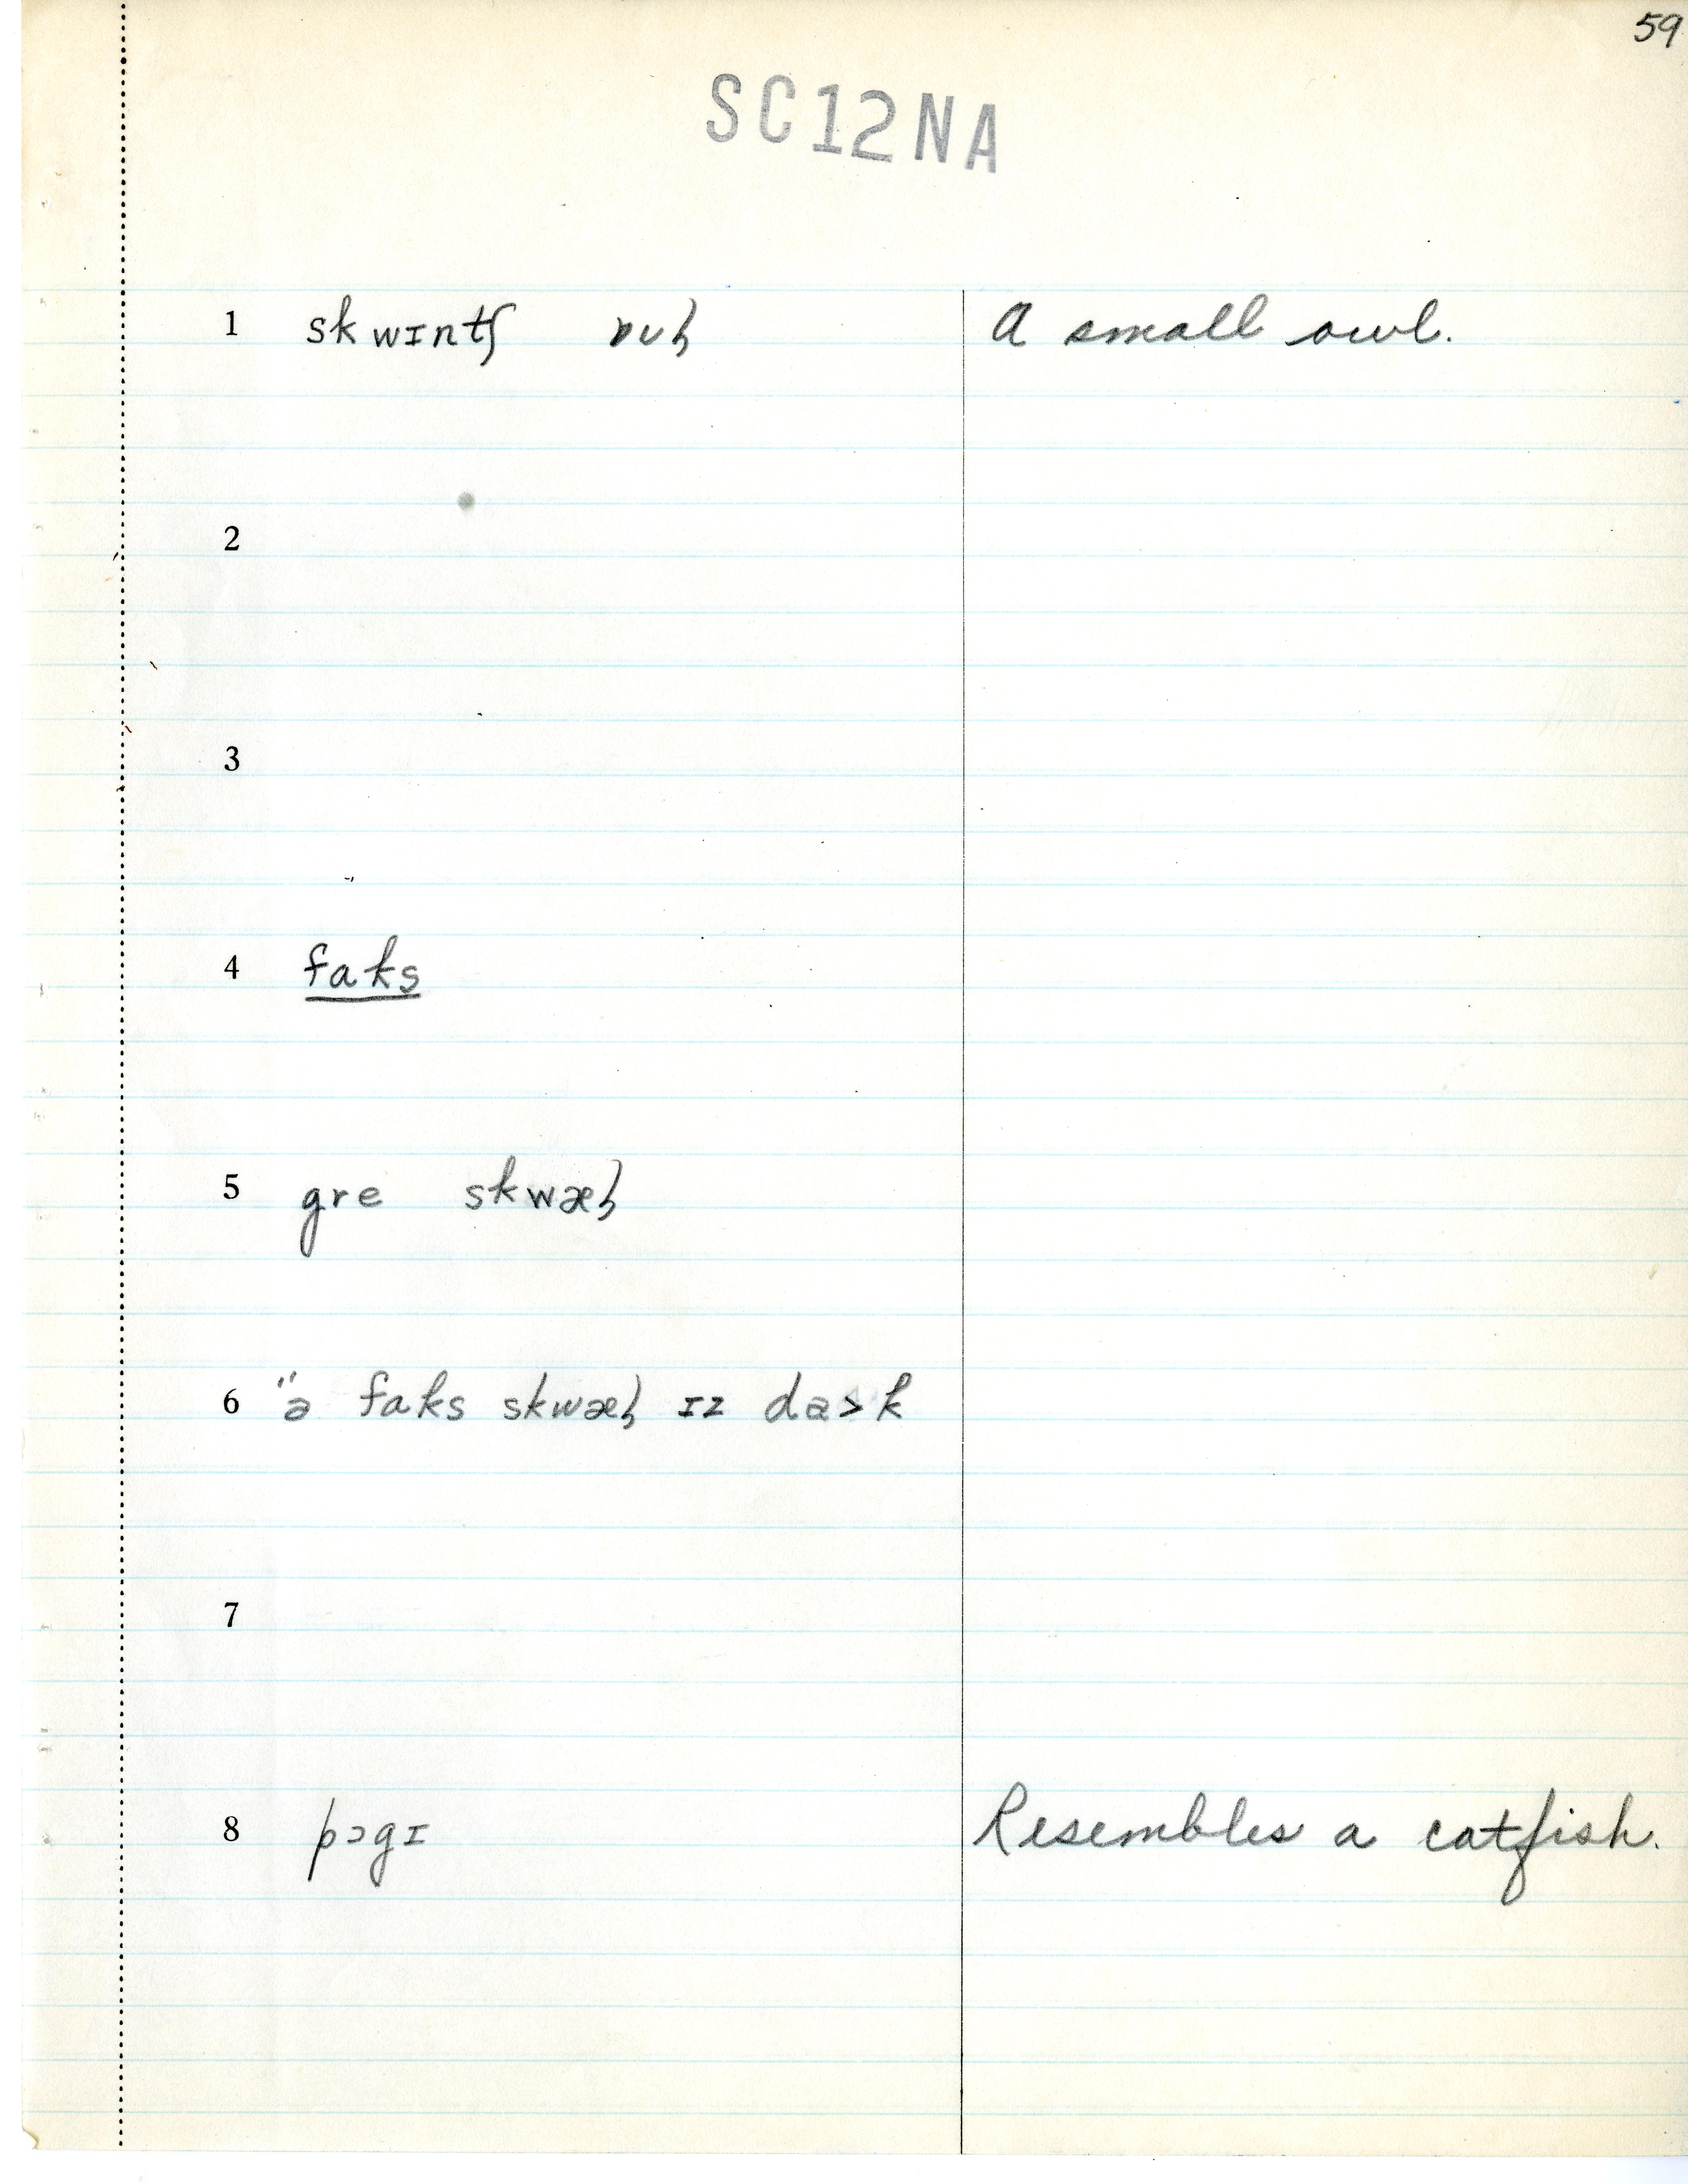 59
SC12NA
1 skwɪntʃ ɒuɫ A small owl.
2
3
4 faks
5 gre skwæɫ
6 "ə faks skwæɫ ɪz da>k
7
8 pɔgɪ Resembles a catfish.